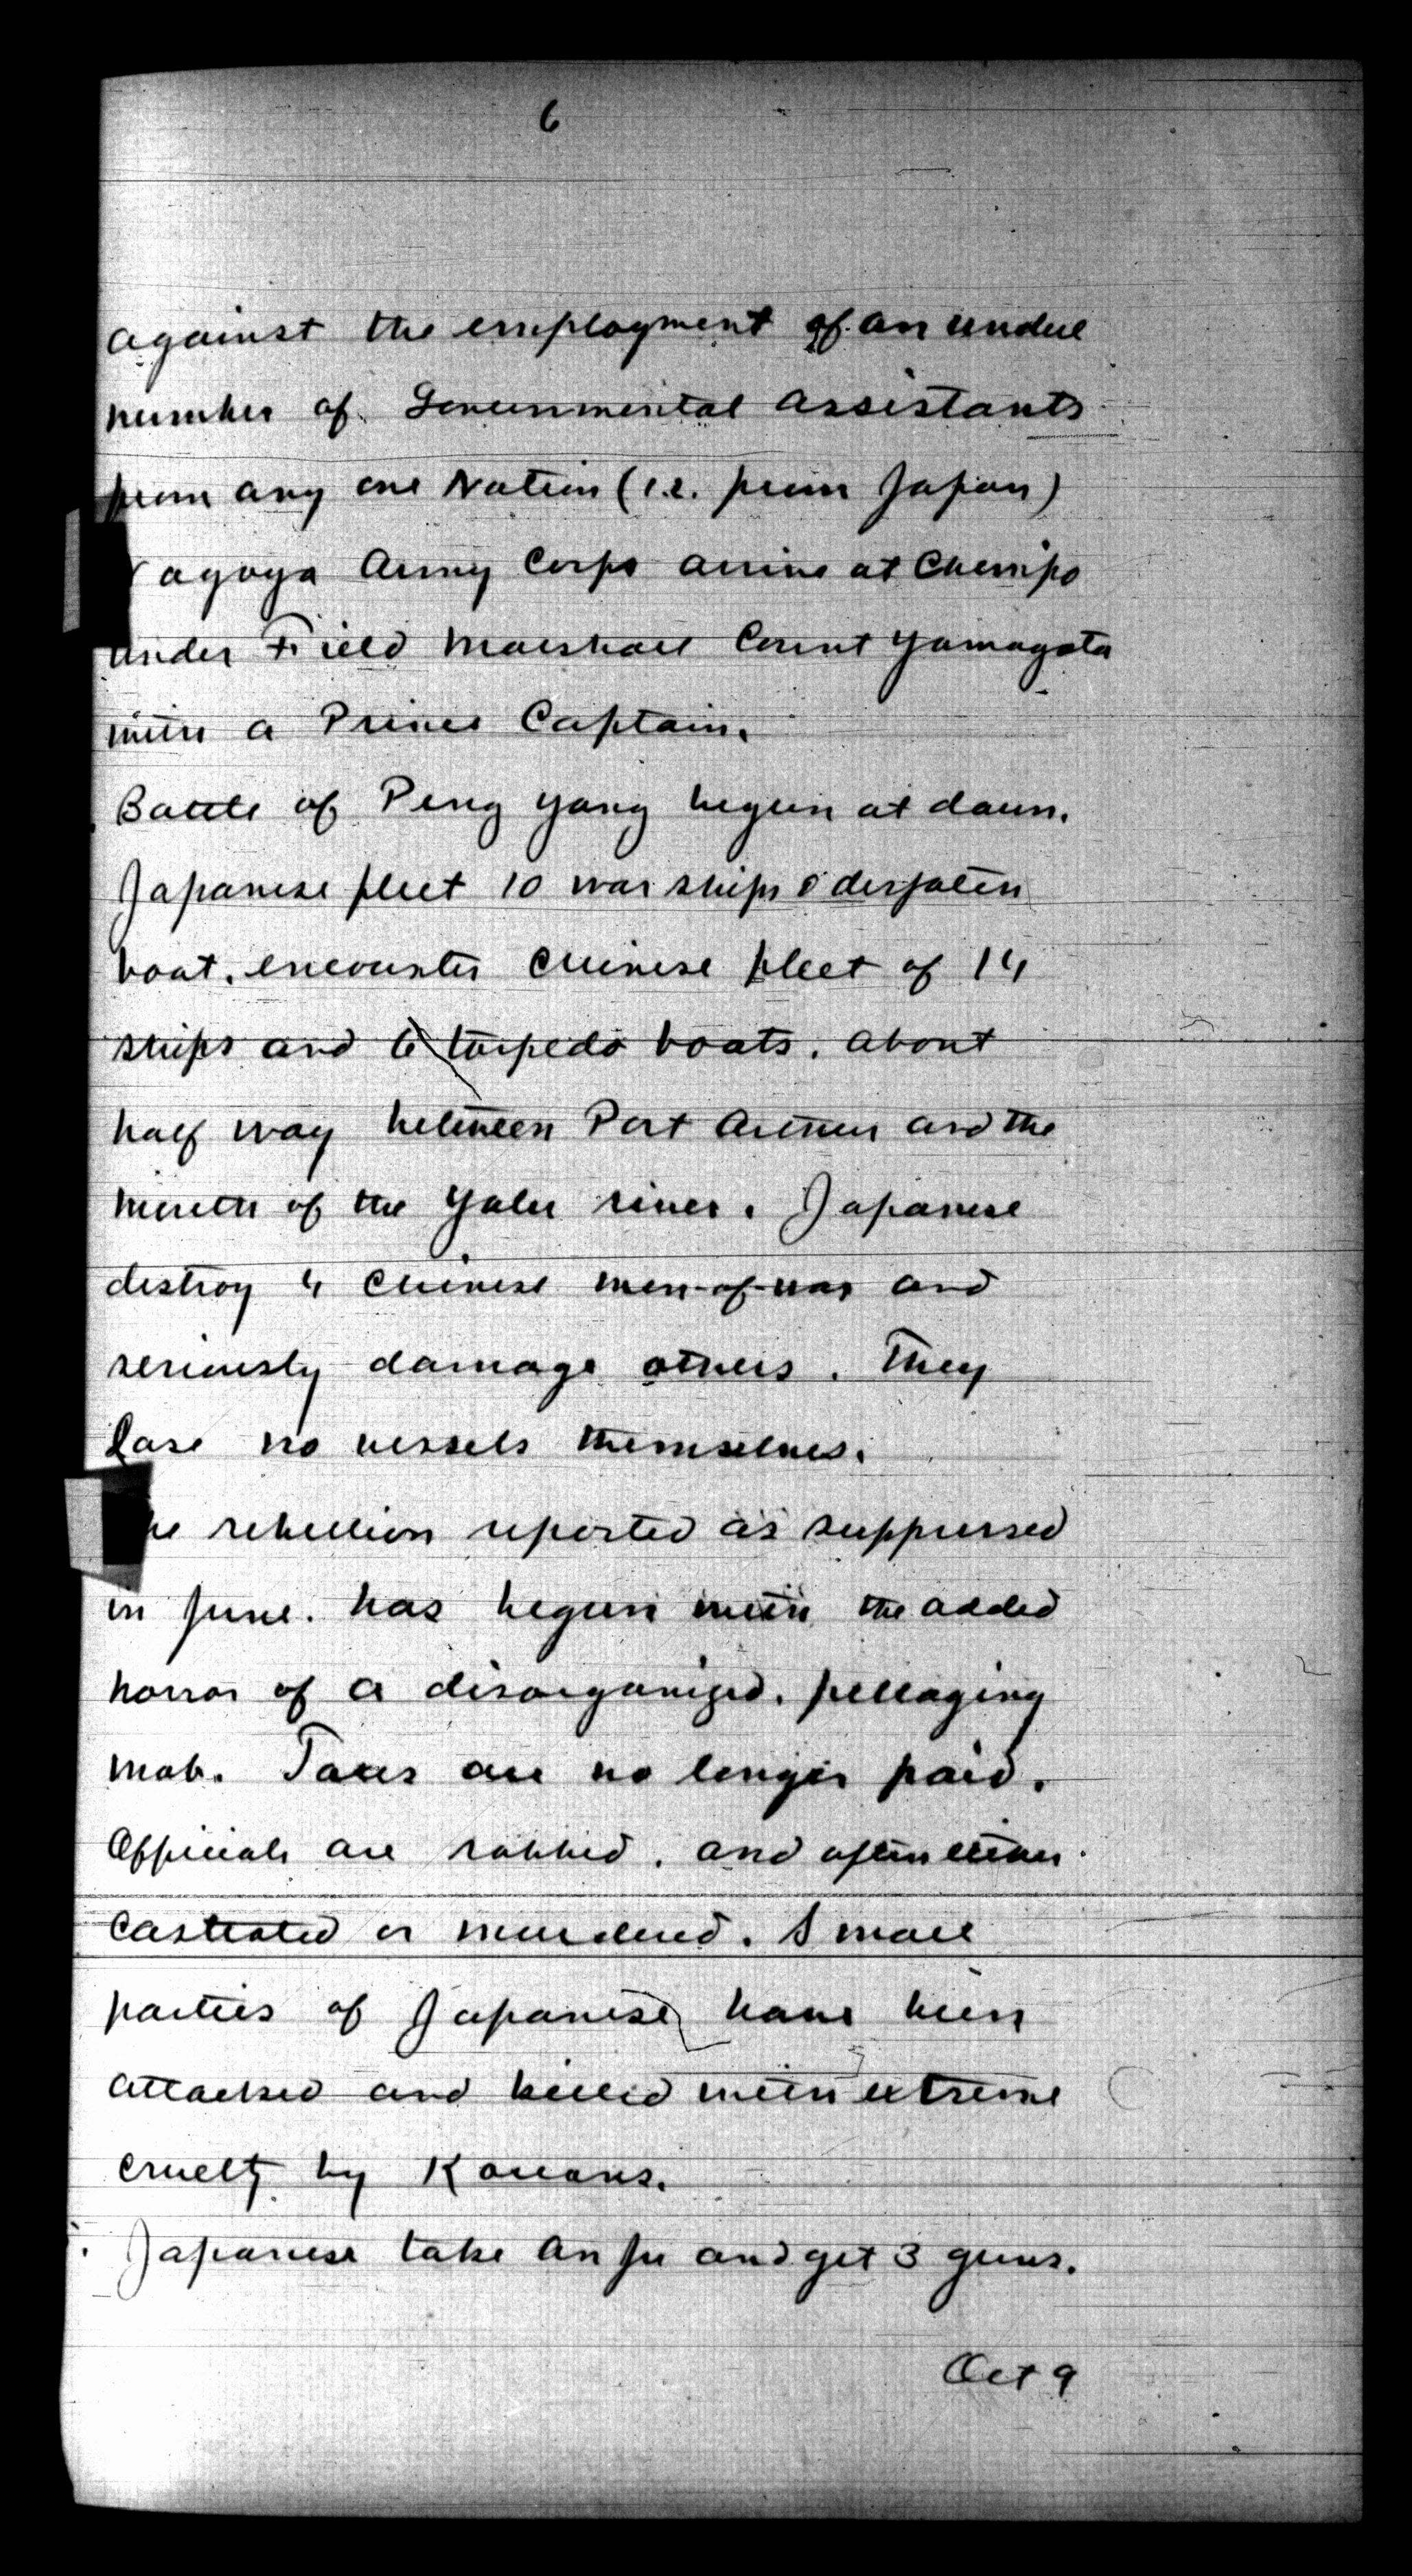 6
against the employment of an undue
number of Governmental assistants
from any one Nation (i.e. from Japan)
agoya Army Corps arrive at Chemipo
under Field Marshall Count Yamagata
with a Prince Captain.
Battle of Peng Yang begun at dawn.
Japanese fleet 10 war ships & despatch
boat. encounter Chinese fleet of 14
ships and 6 torpedo boats. about
half way between Port Arthur and the
mouth of the Yalu river. Japanese
destroy 4 Chinese men-of-war and
seriously damage others. They
lose no vessels themselves.
he rebellion reported as suppressed
in June. has begun with the added
horror of a disorganized. pillaging
mob. Taxes are no longer paid.
Officials are robbed. and often either
castrated or murdered. Small
parties of Japanese have been
attacked and killed with extreme
cruelty by Koreans.
Japanese take An Ju and get 3 guns.
Oct 9